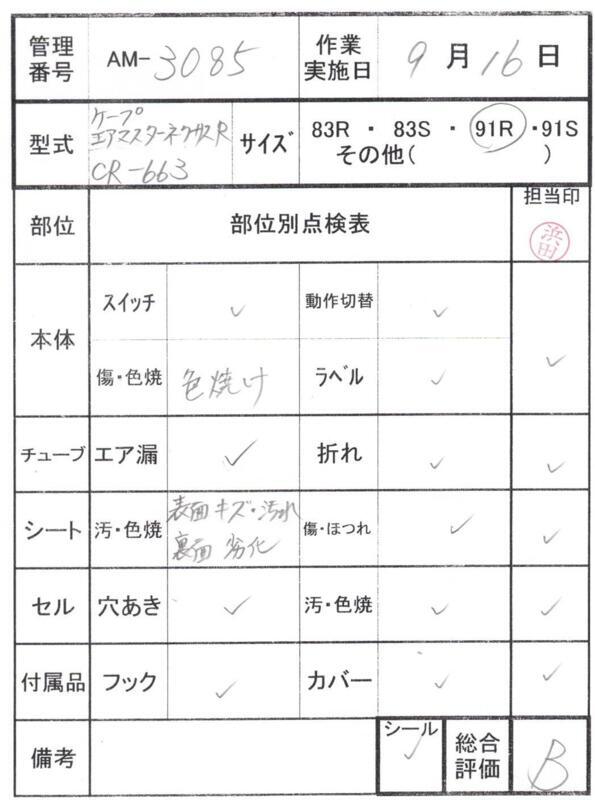 管理番号 AM-3085 作業実施日 9月16日
型式 ケープ
エアマスターネクサスR
CR-663
サイズ 83R ・ 83S ・ 91R ・91S
その他( )
部位 部位別点検表 担当印
浜田
本体 スイッチ ✓ 動作切替 ✓ ✓
傷・色焼 色焼け ラベル ✓
チューブ エア漏 ✓ 折れ ✓ ✓
シート 汚・色焼 表面 キズ・汚れ 傷・ほつれ ✓ ✓
裏面 劣化
セル 穴あき ✓ 汚・色焼 ✓ ✓
付属品 フック ✓ カバー ✓ ✓
備考 シール ✓ 総合評価 B